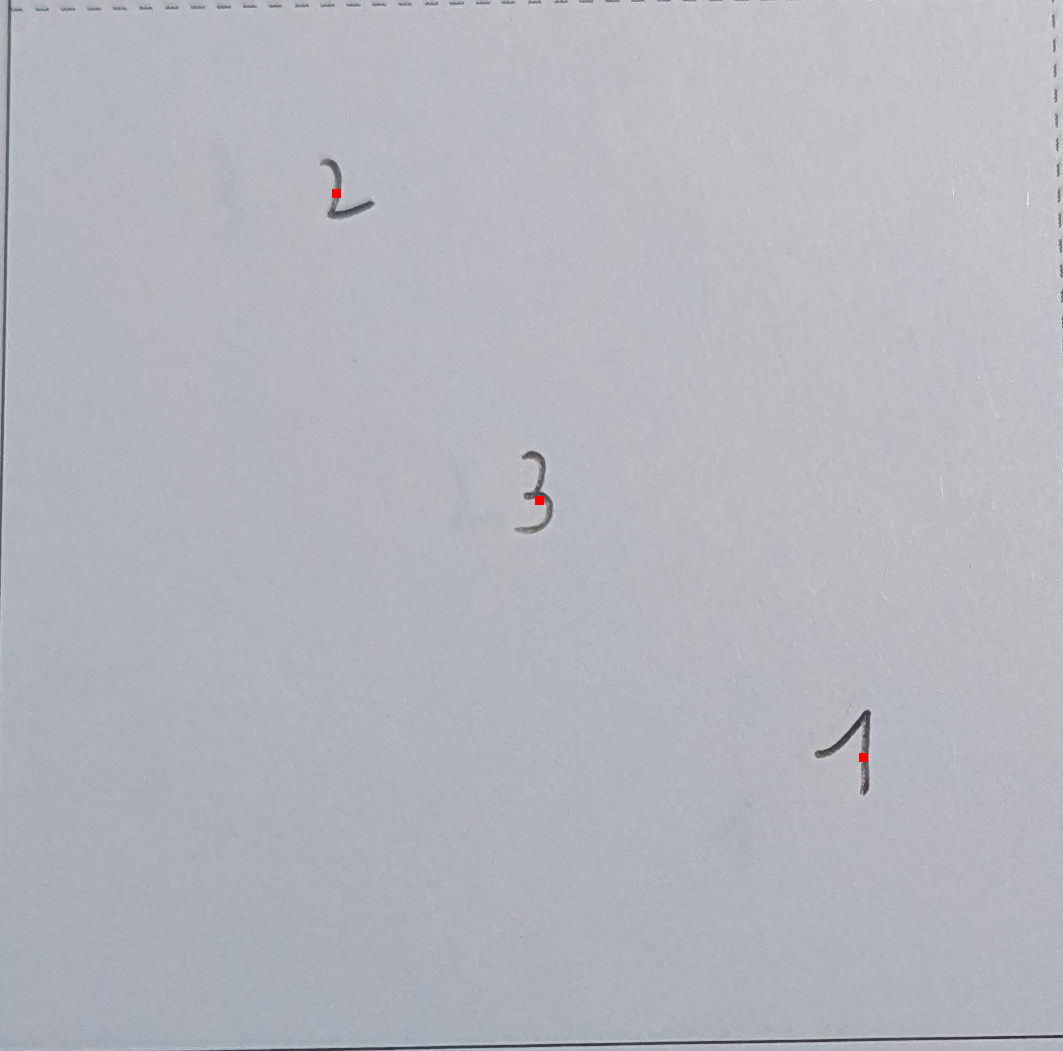 2
3
1